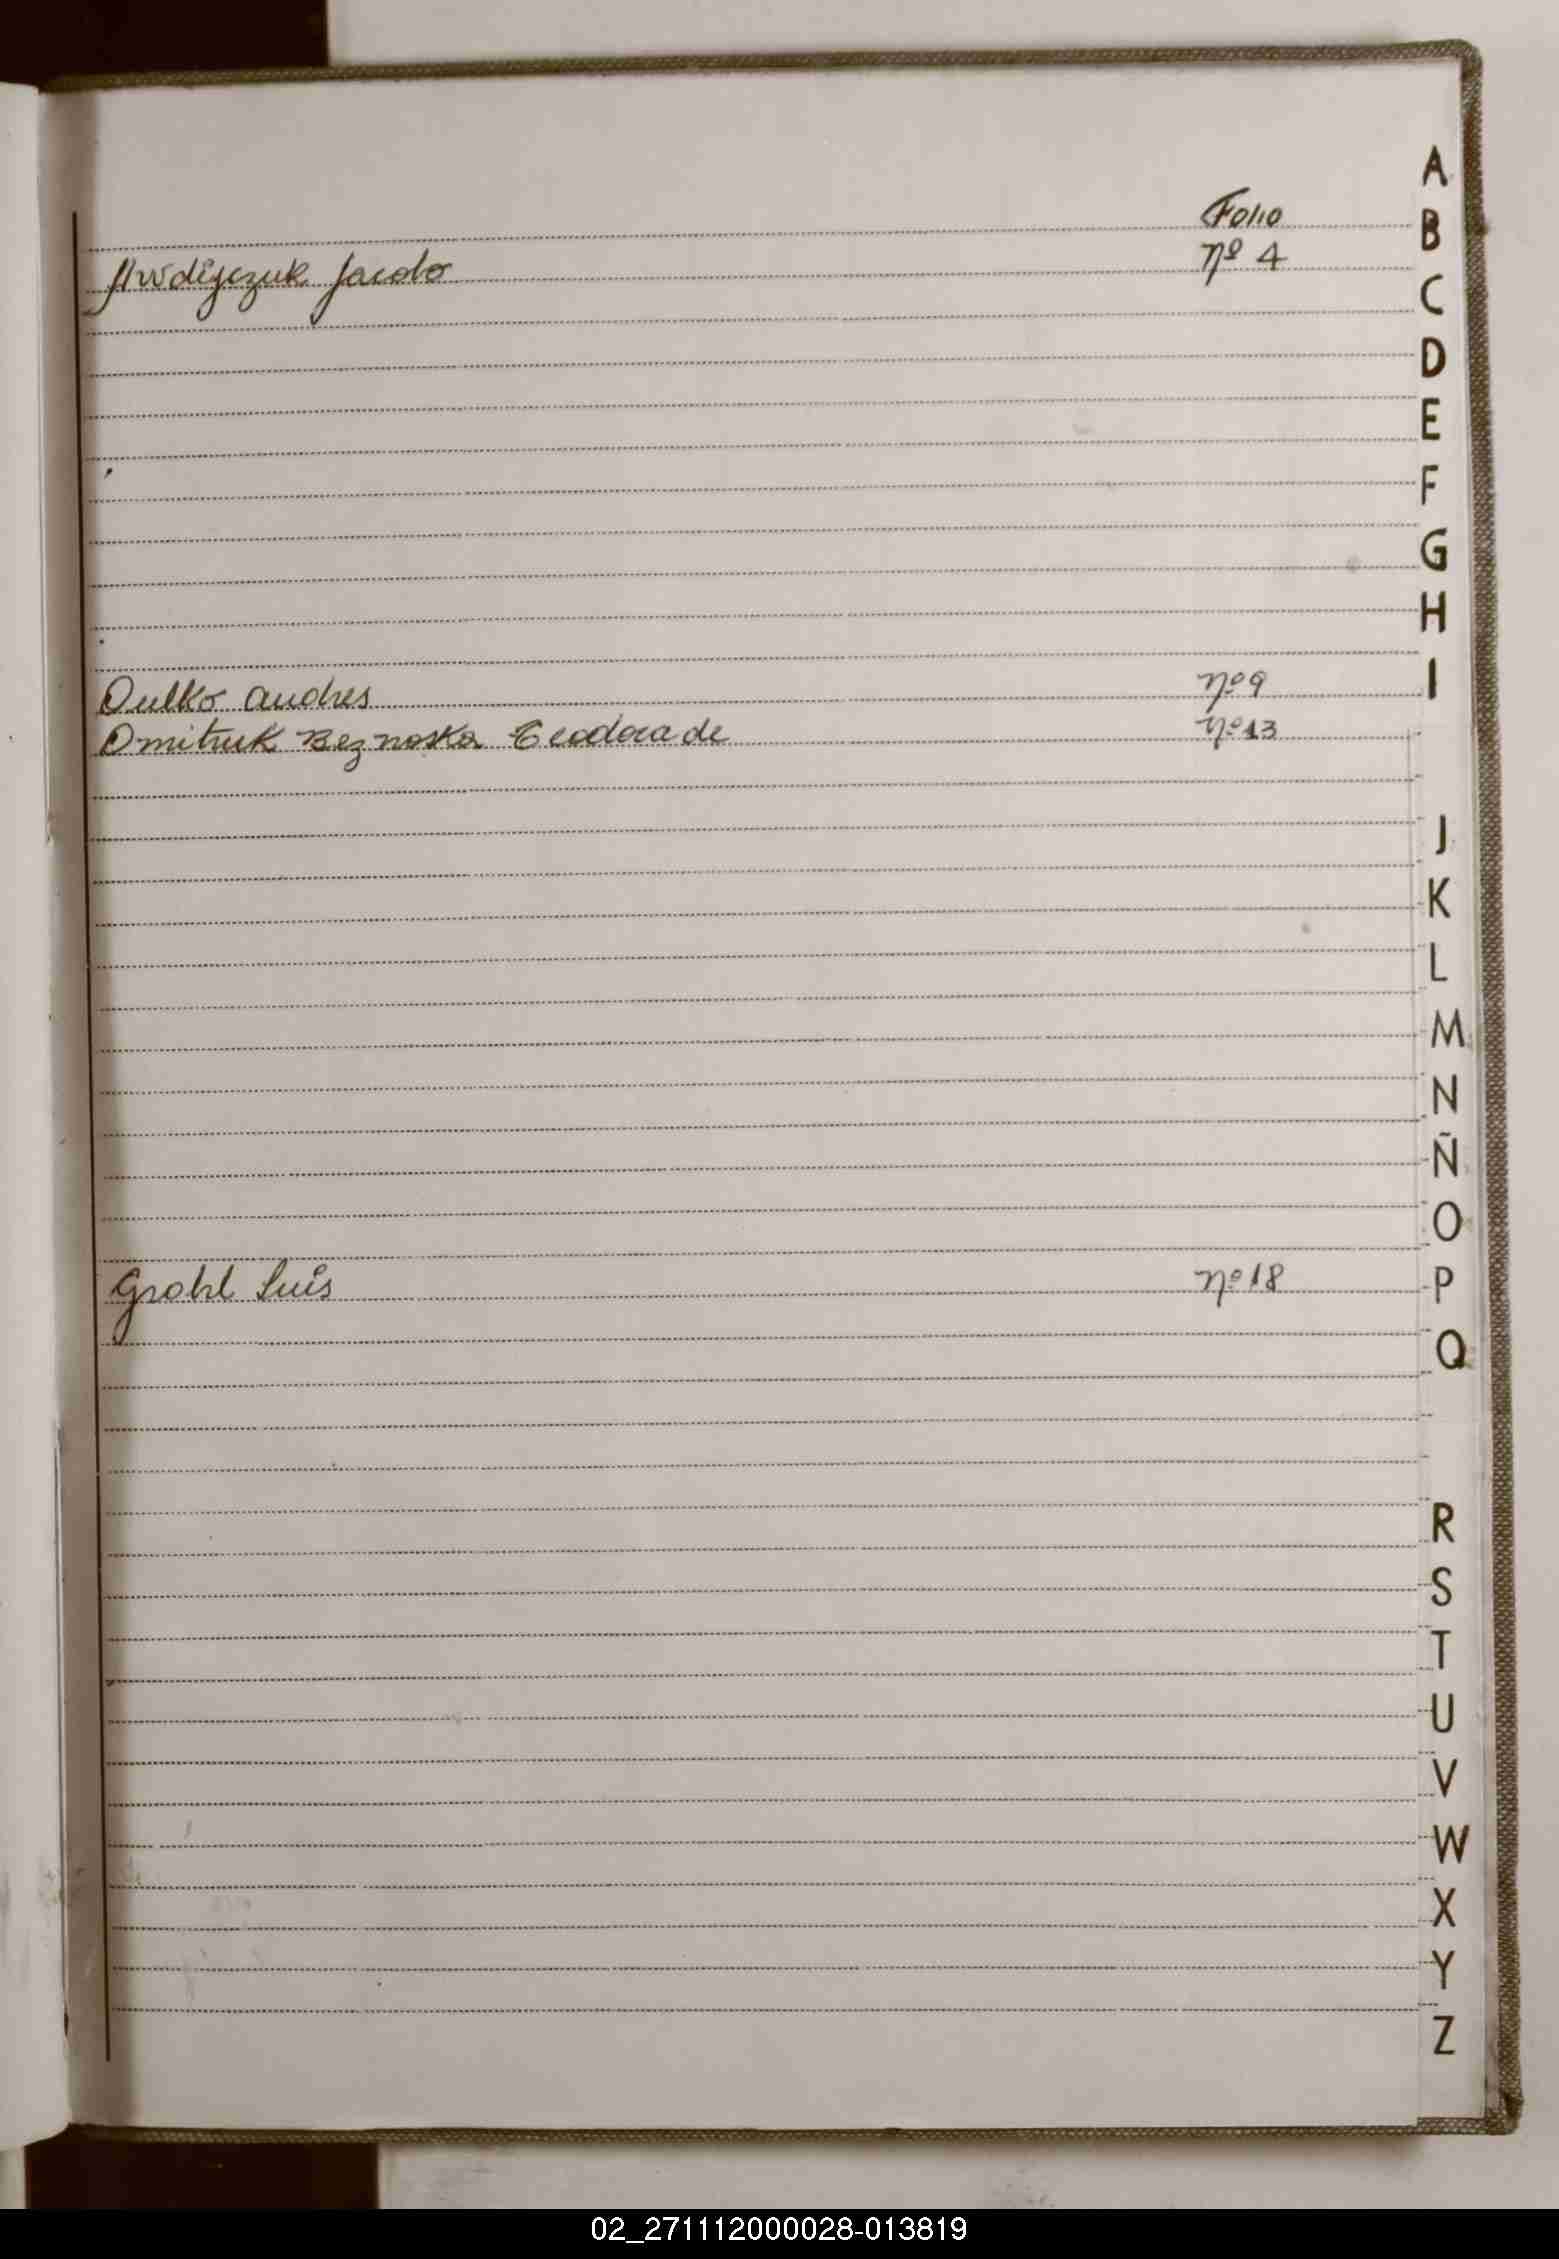 Folio
Awdijczuk Jacobo nº 4
Dulko Andres nº 9
Dmitruk Beznoska Teodora de nº 13
Grohl Luis nº 18
A
B
C
D
E
F
G
H
I
J
K
L
M
N
Ñ
O
P
Q
R
S
T
U
V
W
X
Y
Z
02_271112000028-013819